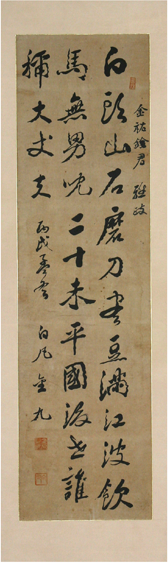 金祐銓君 雅政
白頭山石磨刀盡豆滿江波飲
馬無男兒二十未平國後世誰
稱大丈夫 丙戌 白凡 金九